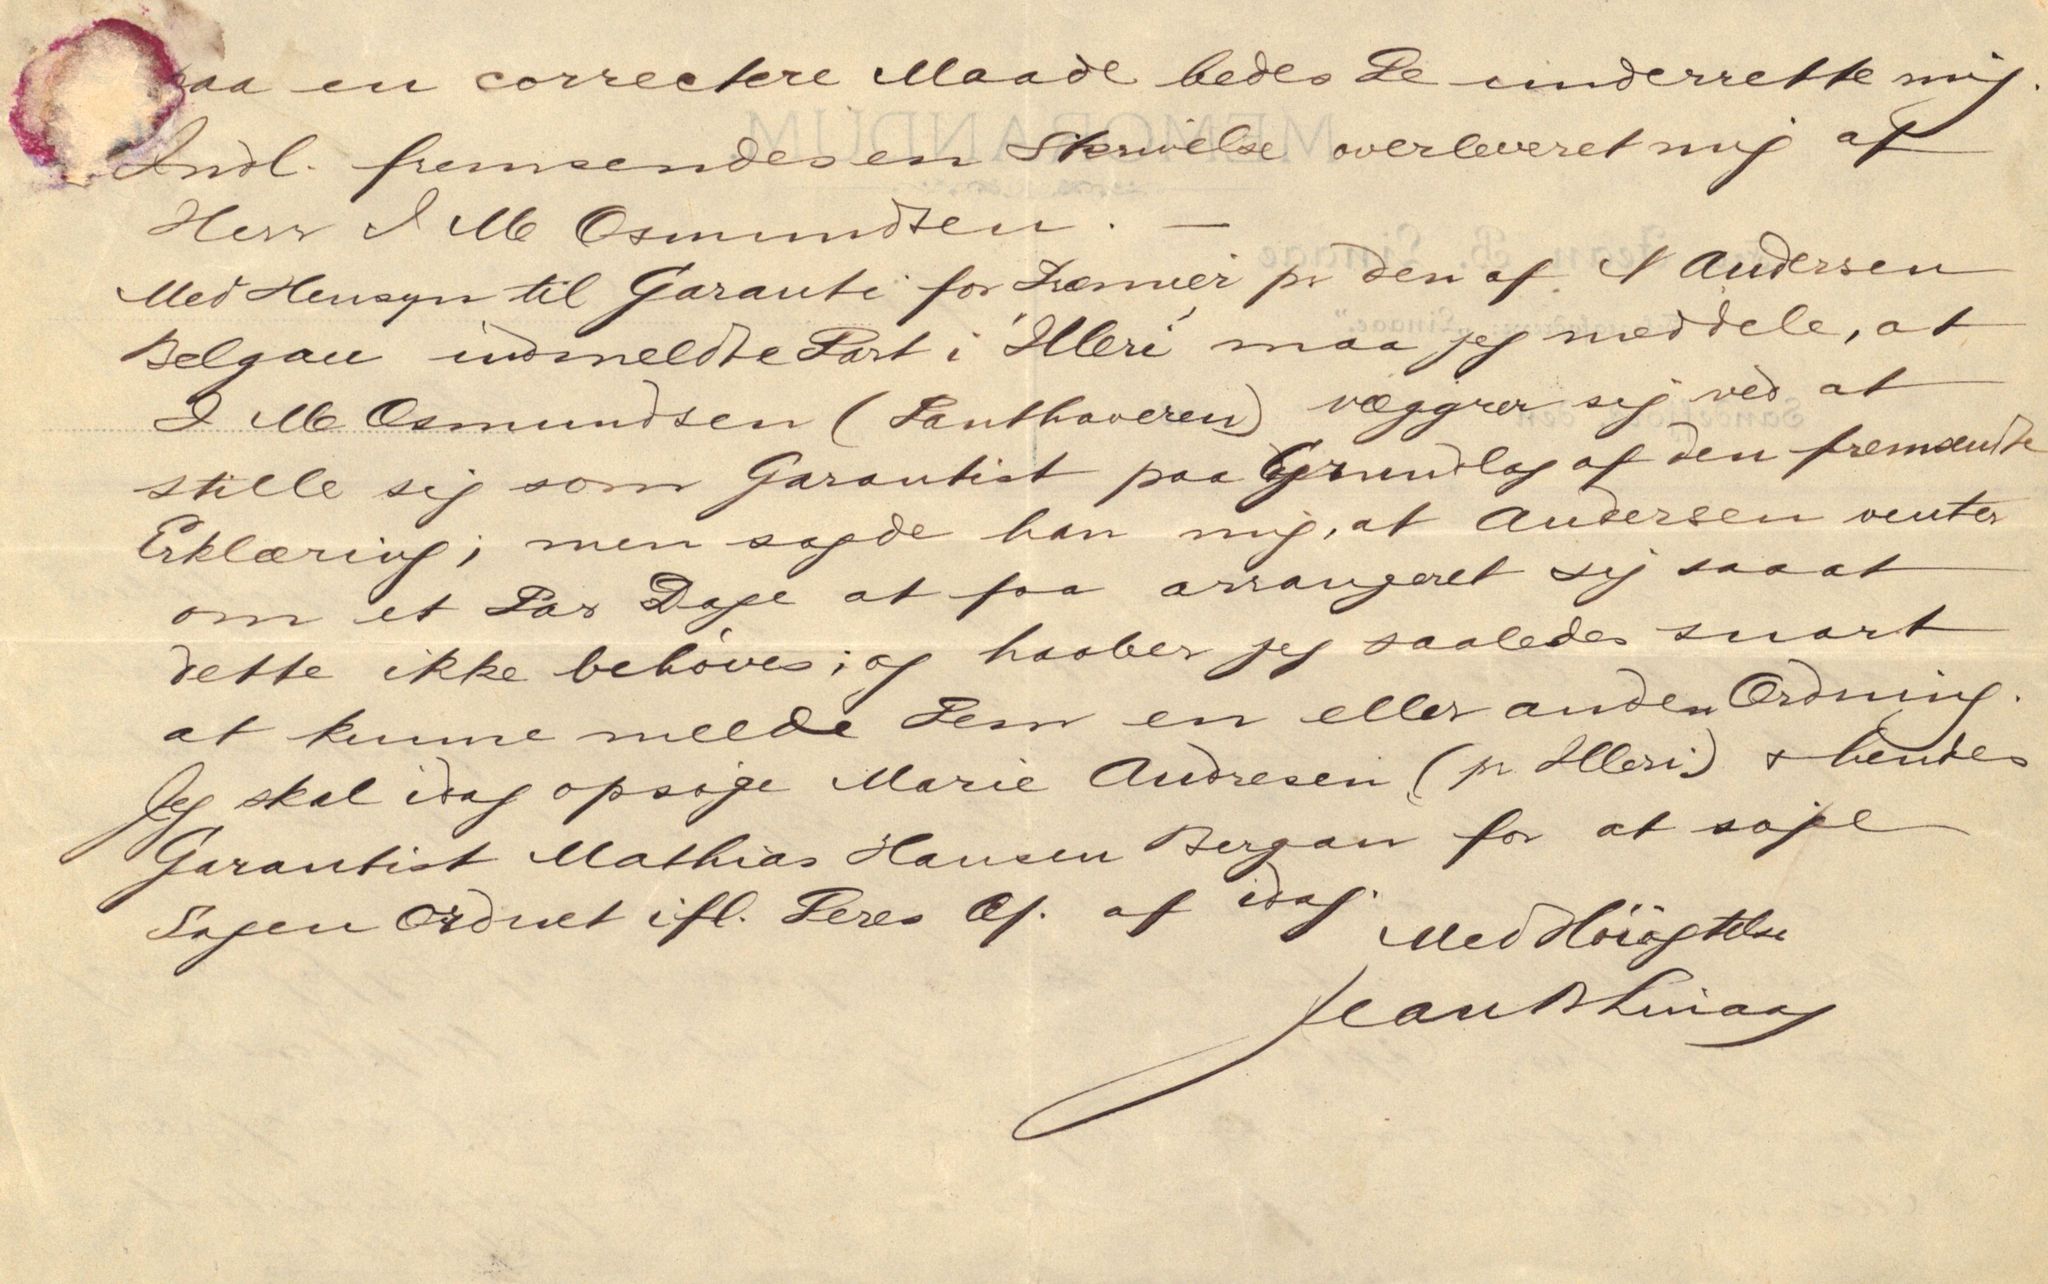 paa en correctere Maade bedes De underrette mig.
Indl. fremsendes en Skrivelse overleveret mig af
Herr I M Osmundsen. —
Med Hensyn til Garanti for Præmier pr den af A Andersen
Belgau indmeldte Part i "Illeri" maa jeg meddele, at
I M Osmundsen (Panthaveren) væggrer sig ved at
stille sig som Garantist paa Grundlag af den fremsendte
Erklæring; men sagde han mig, at Andersen venter
om et Par Dage at faa arrangeret sig saaat
dette ikke behöves; og haaber jeg saaledes snart
at kunne melde Dem en eller anden Ordning.
Jeg skal idag opsøge Marie Andresen (pr Illeri) & hendes
Garantist Mathias Hansen Bergan for at søge
Sagen Ordnet ifl. Deres Af. af idag.
Med Höiagtelse
Jean B Linaae
MEMORANDUM
Jean B. Linaae
"Linaae."
Sandefjord den